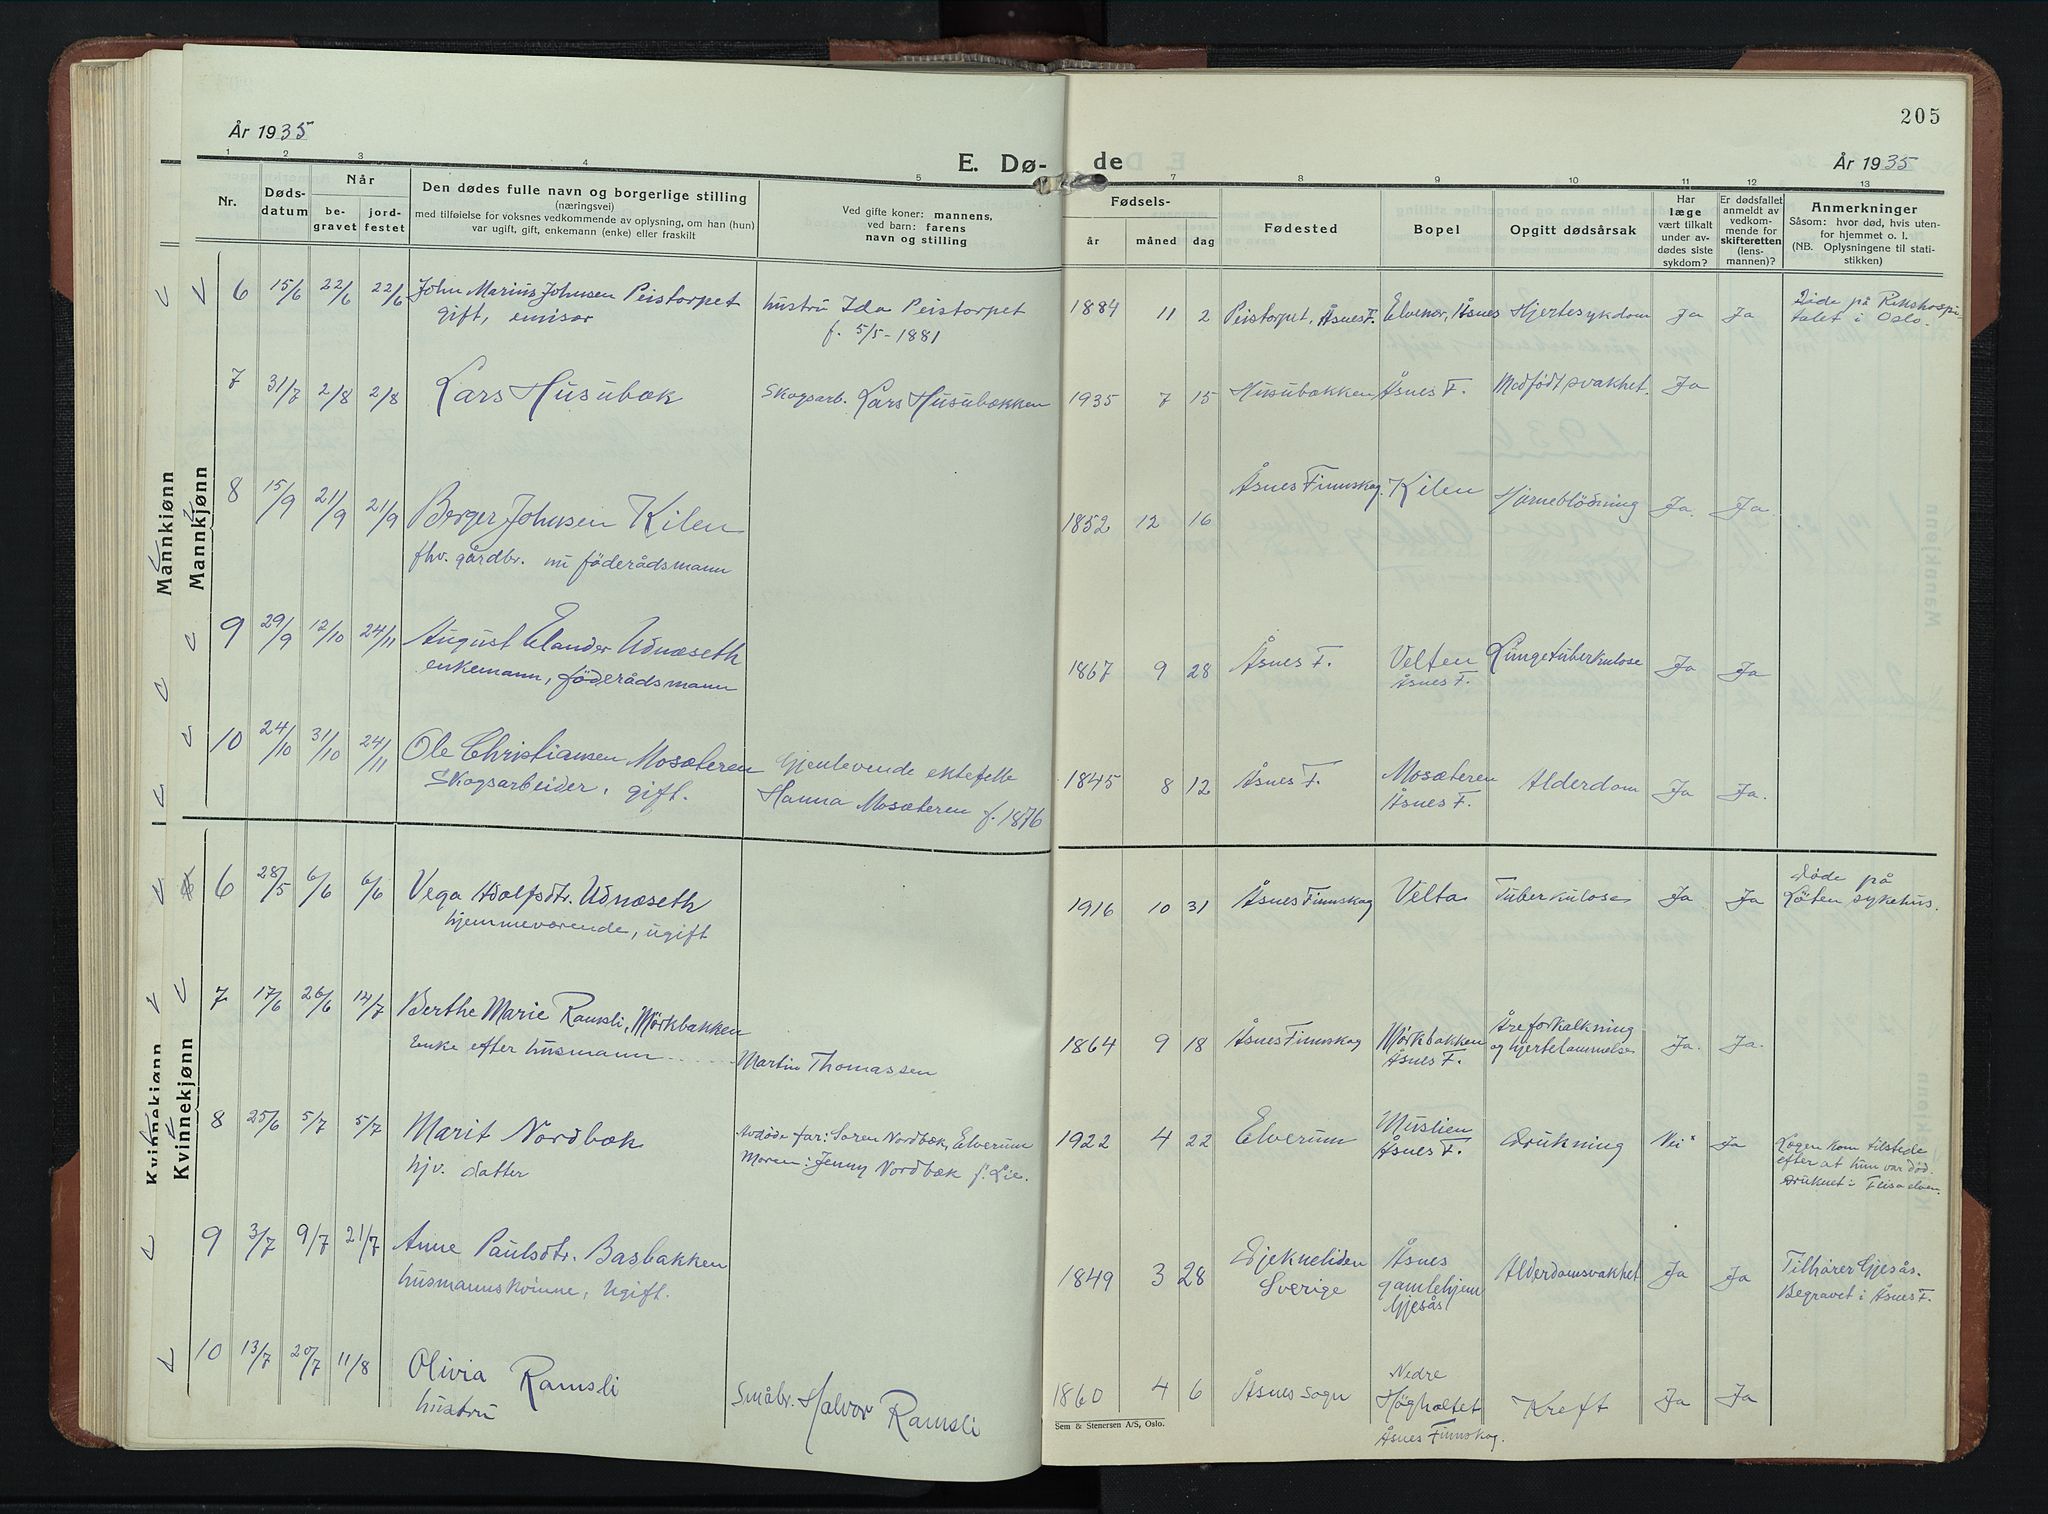 205
År 1935
E. Dø-
de
År 1935
1
2
3
4
5
7
8
9
10
11
12
13
Nr.
Døds-
datum
Når
be-
gravet
jord-
festet
Den dødes fulle navn og borgerlige stilling
(næringsvei)
med tilføielse for voksnes vedkommende av oplysning, om han (hun)
var ugift, gift, enkemann (enke) eller fraskilt
Ved gifte koner: mannens,
ved barn: farens
navn og stilling
Fødsels-
år
måned
dag
Fødested
Bopel
Opgitt dødsårsak
Har
læge
vært tilkalt
under av-
dødes siste
sykdom?
Er dødsfallet
anmeldt av
vedkom-
mende for
skifteretten
(lens-
mannen)?
Anmerkninger
Såsom: hvor død, hvis uten-
for hjemmet o. l.
(NB. Oplysningene til stati-
stikken)
Mannkjønn
Mannkjønn
6 15/6 22/6 22/6 John Marius Johnsen Peistorpet
gift, emisær
hustru Ida Peistorpet
f. 5/5-1881
1884 11 2 Peistorpet, Åsnes F. Elvenor, Åsnes Hjertesykdom Ja Ja
Døde på Rikshospi-
talet i Oslo.
7 31/7 2/8 2/8 Lars Husubæk
Skogsarb. Lars Husubækken
1935 7 15 Husubækken Åsnes F. Medfødt svakhet. Ja
8 15/9 21/9 21/9 Berger Johnsen Kilen
fhv. gårdbr. nu föderådsmann
1852 12 16 Åsnes Finnskog. Kilen Hjerneblödning Ja. Ja.
9 29/9 12/10 24/11 August Elander Udnæseth
enkemann, föderådsmann
1867 9 28 Åsnes F. Velten
Åsnes F.
Lungetuberkulose Ja Ja
10 24/10 31/10 24/11 Ole Christiansen Mosæteren
Skogsarbeider, gift.
Gjenlevende ektefelle
Hanna Mosæteren f. 1876
1845 8 12 Åsnes F. Mosæteren
Åsnes F.
Alderdom Ja Ja.
Kvinnekjønn
Kvinnekjønn
6 28/5 6/6 6/6 Vega Adolfsdtr. Udnæseth
hjemmeværende, ugift
1916 10 31 Åsnes Finnskog Velta Tuberkulose Ja Ja
Døde på
Löten sykehus.
7 17/6 26/6 14/7 Berthe Marie Ramsli, Mörkbakken
Enke efter husmann
Martin Thomassen
1864 9 18 Åsnes Finnskog Mörkbakken
Åsnes F.
Åreforkalkning
og hjertelammelse Ja. Ja.
8 25/6 5/7 5/7 Marit Nordbæk
hjv. datter
Avdöde far: Soren Nordbæk, Elverum
Moren: Jenny Nordbæk f. Lie.
1922 4 22 Elverum Muslien
Åsnes F.
Drukning Nei Ja
Lægen kom tilstede
efter at hun var död.
Druknet i Flisaelven.
9 3/7 9/7 21/7 Anne Paulsdtr. Basbakken
husmannskvinne, ugift.
1849 3 28 Djekneliden
Sverige
Åsnes
gamlehjem
Gjesås
Alderdomsvakhet Ja Ja
Tilhører Gjesås.
Begravet i Åsnes F.
10 13/7 20/7 11/8 Olivia Ramsli
hustru
Småbr. Halvor Ramsli
1860 4 6 Åsnes sogn
Nedre
Höghaltet
Åsnes Finnskog.
Kreft Ja Ja
Sem & Stenersen A/S, Oslo.